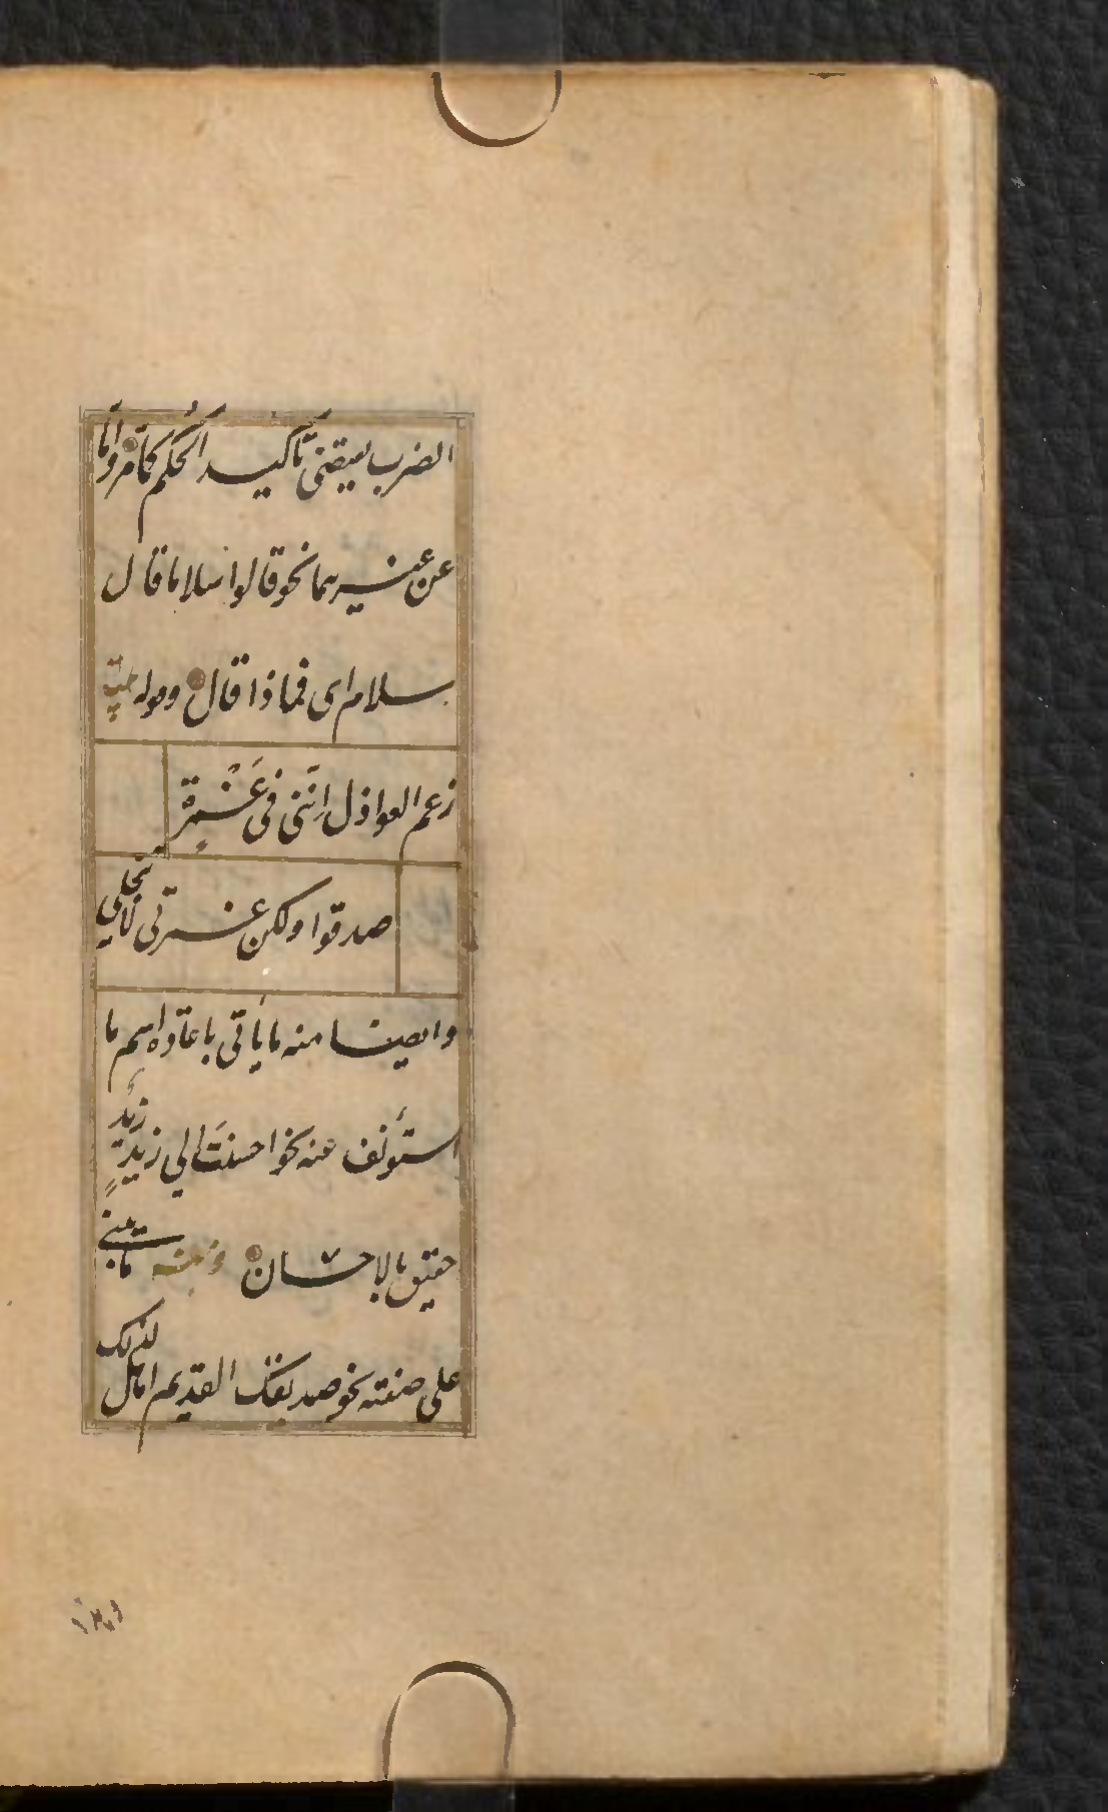 الضرب يقتضى تأكيد الحكم كما مرّ وامّا
عن غيرهما نحو قالوا سلاما قال
سلام اى فماذا قال وقوله
زعم العواذل انّنى فى غَمْرة
صدقوا ولكن غمرتى لا تنجلي
وايضا منه ما يأتى باعادة اسم ما
استؤنف عنه نحو احسنتَ الى زيدٍ زيدٌ
حقيق بالاحسان ومنه ما يبنى
على صفته نحو صديقك القديم اهل لذلك